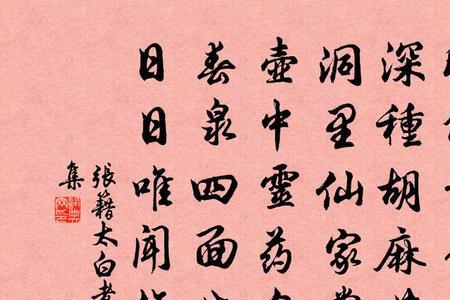 深種胡麻
洞里仙家
壺中靈药
春泉四面
日日唯闻
張籍太白老
集